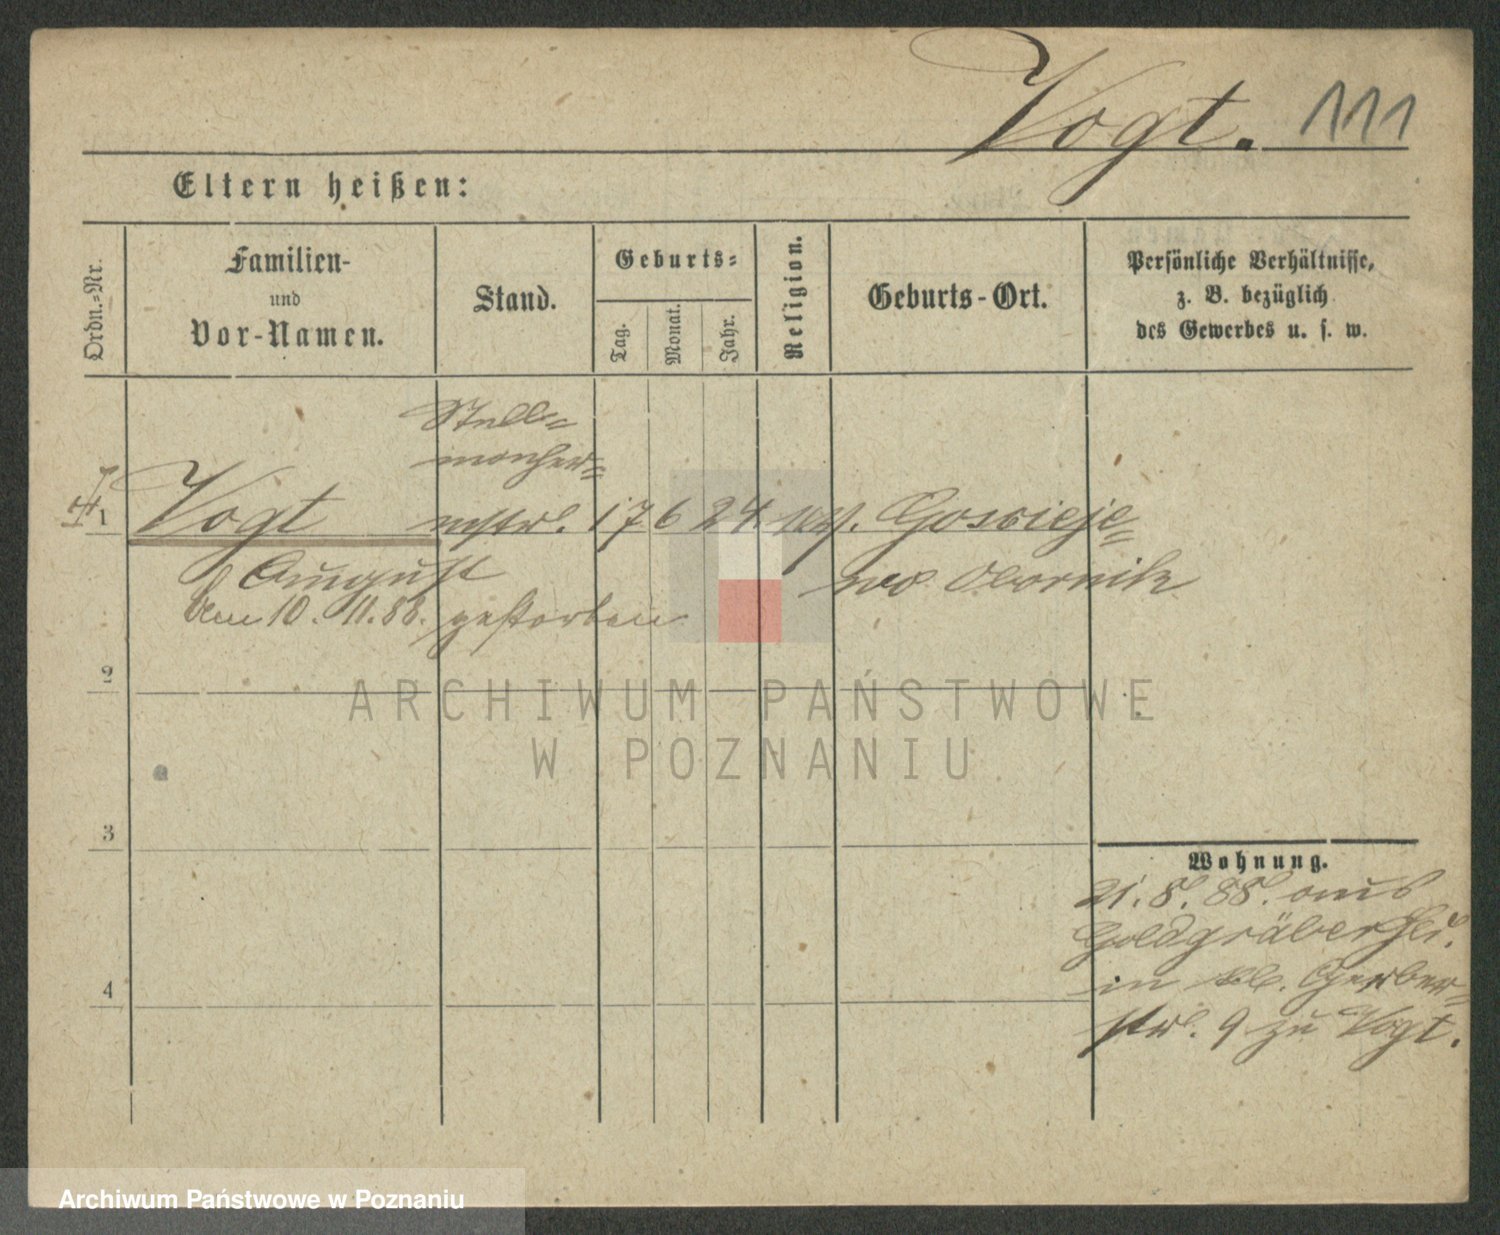 Vogt. 111
Eltern heißen:
Ordn.=Nr.
Familien-
und
Vor-Namen.
Stand.
Geburts=
Tag.
Monat.
Jahr.
Religion.
Geburts-Ort.
Persönliche Verhältnisse,
z. B. bezüglich
des Gewerbes u. s. w.
Stell=
macher=
1 Vogt mstr. 17 6 24 ev. Goscieje=
August wo Obornik
den 10. 11. 88. gestorben
2
3
4
Wohnung.
21. 8. 88. aus
Goldgräberstr.
in kl. Gerber=
str. 9 zu Vogt.
ARCHIWUM PAŃSTWOWE
W POZNANIU
Archiwum Państwowe w Poznaniu